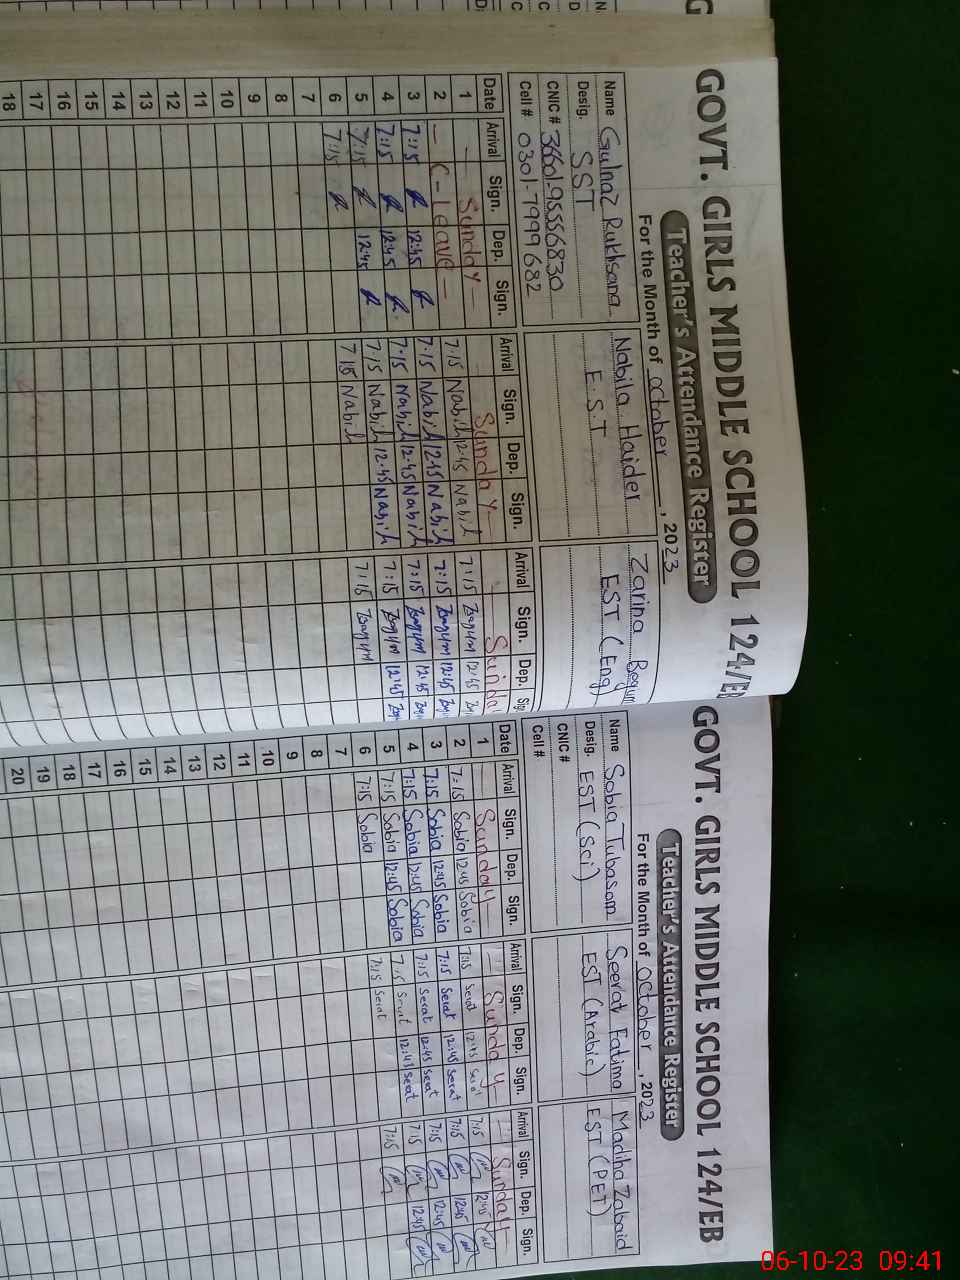 GOVT. GIRLS MIDDLE SCHOOL 124/EB
Teacher's Attendance Register
For the Month of October, 2023
Name Gulnaz Rukhsana Nabila Haider Zarina Begum
Desig. SST E.S.T EST (Eng)
CNIC # 36601-95556830
Cell # 0301-7999682
Date Arrival Sign. Dep. Sign. Arrival Sign. Dep. Sign. Arrival Sign. Dep. Sig
1 — Sunday — — Sunday — — Sunda
2 — C-Leave — 7:15 Nabih 12:45 Nabih 7:15 Zbagum 12:45
3 7:15 12:45 7:15 Nabih 12:45 Nabih 7:15 Zbagum 12:45
4 7:15 12:45 7:15 Nabih 12:45 Nabih 7:15 Zbagum 12:45
5 7:15 12:45 7:15 Nabih 12:45 Nabih 7:15 Zbagum 12:45
6 7:15 7:15 Nabih 7:15 Zbagum
7
8
9
10
11
12
13
14
15
16
17
18
GOVT. GIRLS MIDDLE SCHOOL 124/EB
Teacher's Attendance Register
For the Month of October, 2023
Name Sobia Tubasam Seerat Fatima Madiha Zabaid
Desig. EST (Sci) EST (Arabic) EST (PET)
CNIC #
Cell #
Date Arrival Sign. Dep. Sign. Arrival Sign. Dep. Sign. Arrival Sign. Dep. Sign.
1 — Sunday — — Sunday — — Sunday —
2 7:15 Sobia 12:45 Sobia 7:15 Serat 12:45 Serat 7:15 12:45
3 7:15 Sobia 12:45 Sobia 7:15 Serat 12:45 Serat 7:15 12:45
4 7:15 Sobia 12:45 Sobia 7:15 Serat 12:45 Serat 7:15 12:45
5 7:15 Sobia 12:45 Sobia 7:15 Serat 12:45 Serat 7:15 12:45
6 7:15 Sobia 7:15 Serat 7:15
7
8
9
10
11
12
13
14
15
16
17
18
19
20
06-10-23 09:41